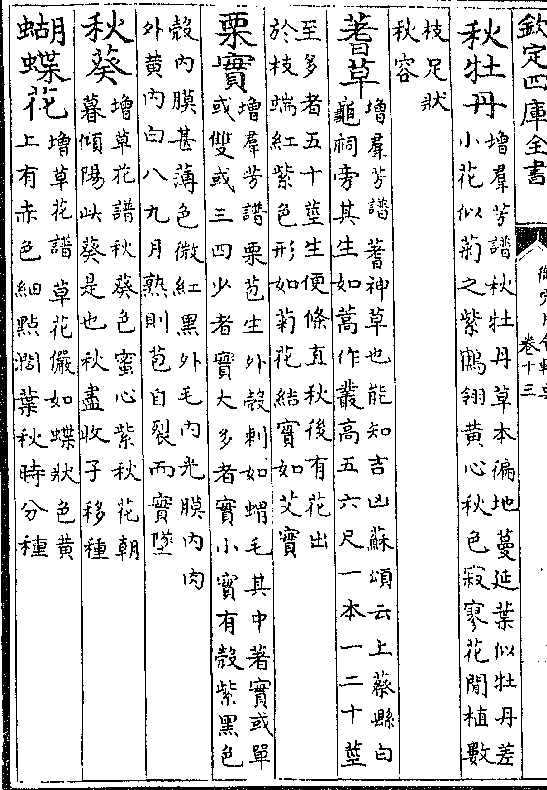 欽定四庫全書
卷十三
秋牡丹 增羣芳譜秋牡丹草本徧地蔓延葉似牡丹差
小花似菊之紫鶴翎黄心秋色寂寥花間植數
枝足狀
秋容
蓍草 增羣芳譜蓍神草也能知吉凶蘇頌云上蔡縣白
龜祠旁其生如蒿作叢高五六尺一本一二十莖
至多者五十莖生便條直秋後有花出
於枝端紅紫色形如菊花結實如艾實
栗實 增羣芳譜栗苞生外殼刺如蝟毛其中著實或單
或雙或三四少者實大多者實小實有殼紫黑色
殼内膜甚薄色微紅黑外毛内光膜内肉
外黄内白八九月熟則苞自裂而實墜
秋葵 增草花譜秋葵色蜜心紫秋花朝
暮傾陽此葵是也秋盡收子移種
蝴蝶花 增草花譜草花儼如蝶狀色黄
上有赤色細點濶葉秋時分種